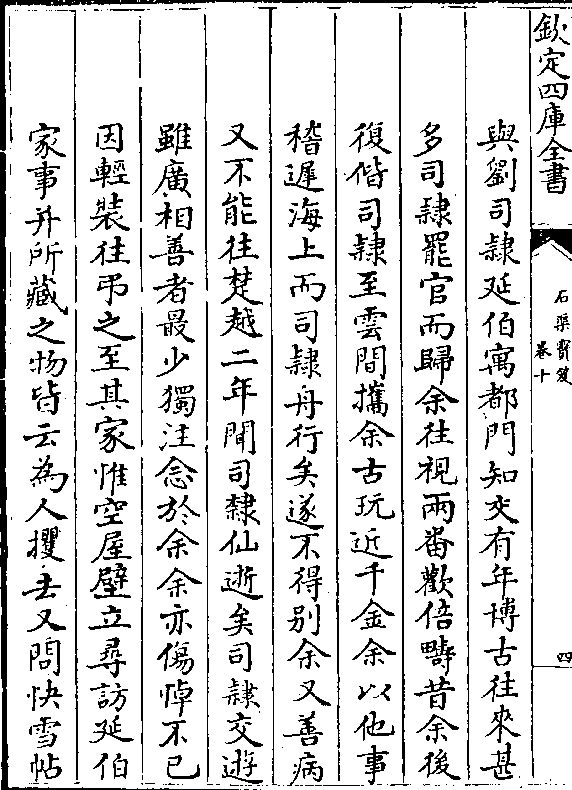 欽定四庫全書
石渠寶笈
卷十
四
與劉司隸延伯寓都門知交有年博古往來甚
多司隸罷官而歸余往視兩番歡倍疇昔余後
復偕司隸至雲間攜余古玩近千金余以他事
稽遲海上而司隸舟行矣遂不得別余又善病
又不能往楚越二年聞司隸仙逝矣司隸交遊
雖廣相善者最少獨注念於余余亦傷悼不已
因輕裝往弔之至其家惟空屋壁立尋訪延伯
家事并所藏之物皆云為人攫去又問快雪帖